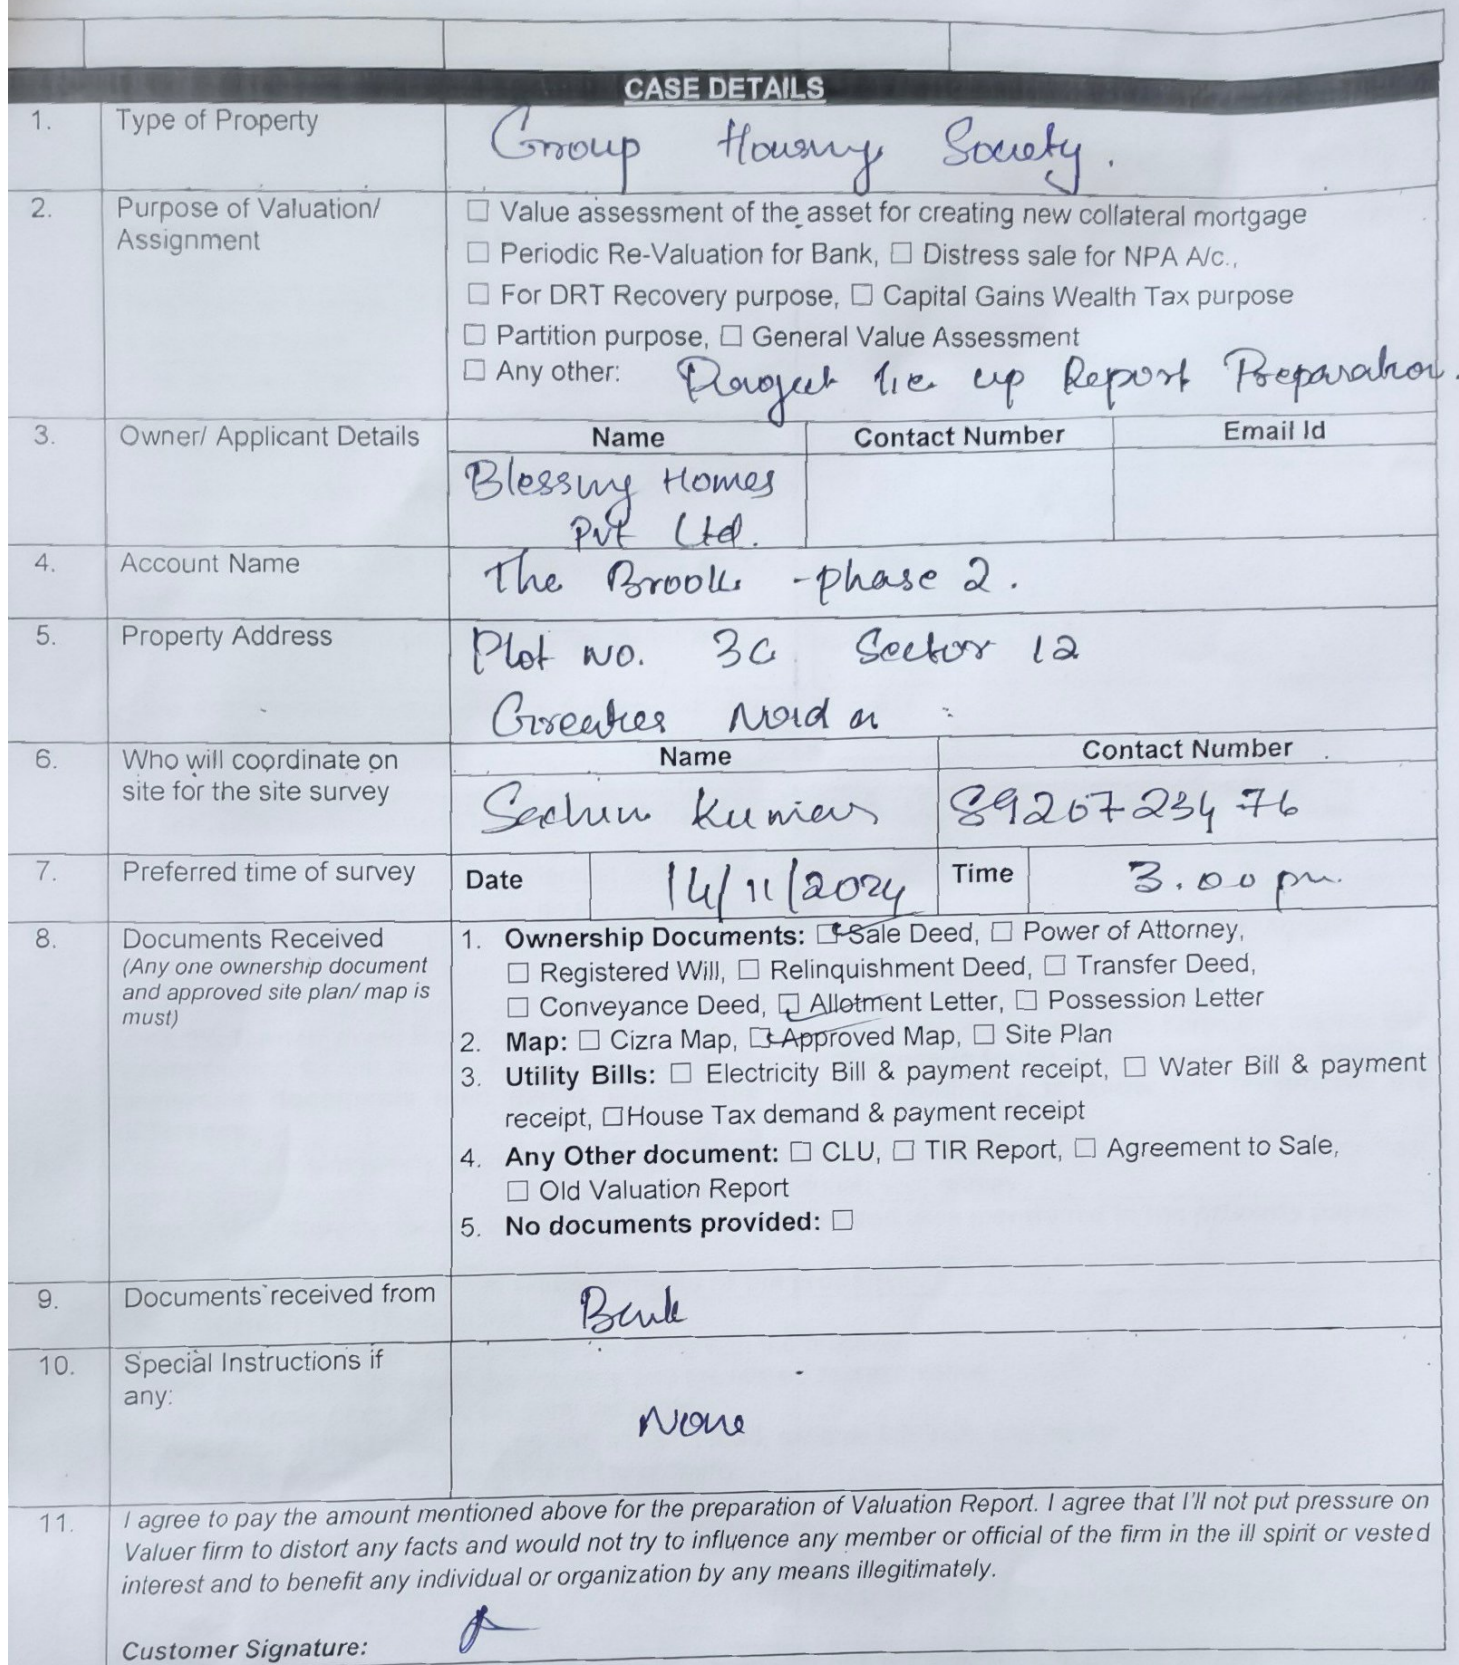 CASE DETAILS
1. Type of Property Group Housing Society.
2. Purpose of Valuation/ Assignment
☐ Value assessment of the asset for creating new collateral mortgage
☐ Periodic Re-Valuation for Bank, ☐ Distress sale for NPA A/c.,
☐ For DRT Recovery purpose, ☐ Capital Gains Wealth Tax purpose
☐ Partition purpose, ☐ General Value Assessment
☐ Any other: Project tie up Report Preparation.
3. Owner/ Applicant Details
Name Contact Number Email Id
Blessing Homes
Pvt Ltd.
4. Account Name The Brook -phase 2.
5. Property Address Plot No. 3C Sector 12
Greater Noida
6. Who will coordinate on site for the site survey
Name Contact Number
Sachin Kumar 8920723476
7. Preferred time of survey Date 14/11/2024 Time 3.00 pm.
8. Documents Received
(Any one ownership document
and approved site plan/ map is
must)
1. Ownership Documents: ☑ Sale Deed, ☐ Power of Attorney,
☐ Registered Will, ☐ Relinquishment Deed, ☐ Transfer Deed,
☐ Conveyance Deed, ☑ Allotment Letter, ☐ Possession Letter
2. Map: ☐ Cizra Map, ☑ Approved Map, ☐ Site Plan
3. Utility Bills: ☐ Electricity Bill & payment receipt, ☐ Water Bill & payment
receipt, ☐House Tax demand & payment receipt
4. Any Other document: ☐ CLU, ☐ TIR Report, ☐ Agreement to Sale,
☐ Old Valuation Report
5. No documents provided: ☐
9. Documents received from Bank
10. Special Instructions if any: None
11. I agree to pay the amount mentioned above for the preparation of Valuation Report. I agree that I'll not put pressure on
Valuer firm to distort any facts and would not try to influence any member or official of the firm in the ill spirit or vested
interest and to benefit any individual or organization by any means illegitimately.
Customer Signature: